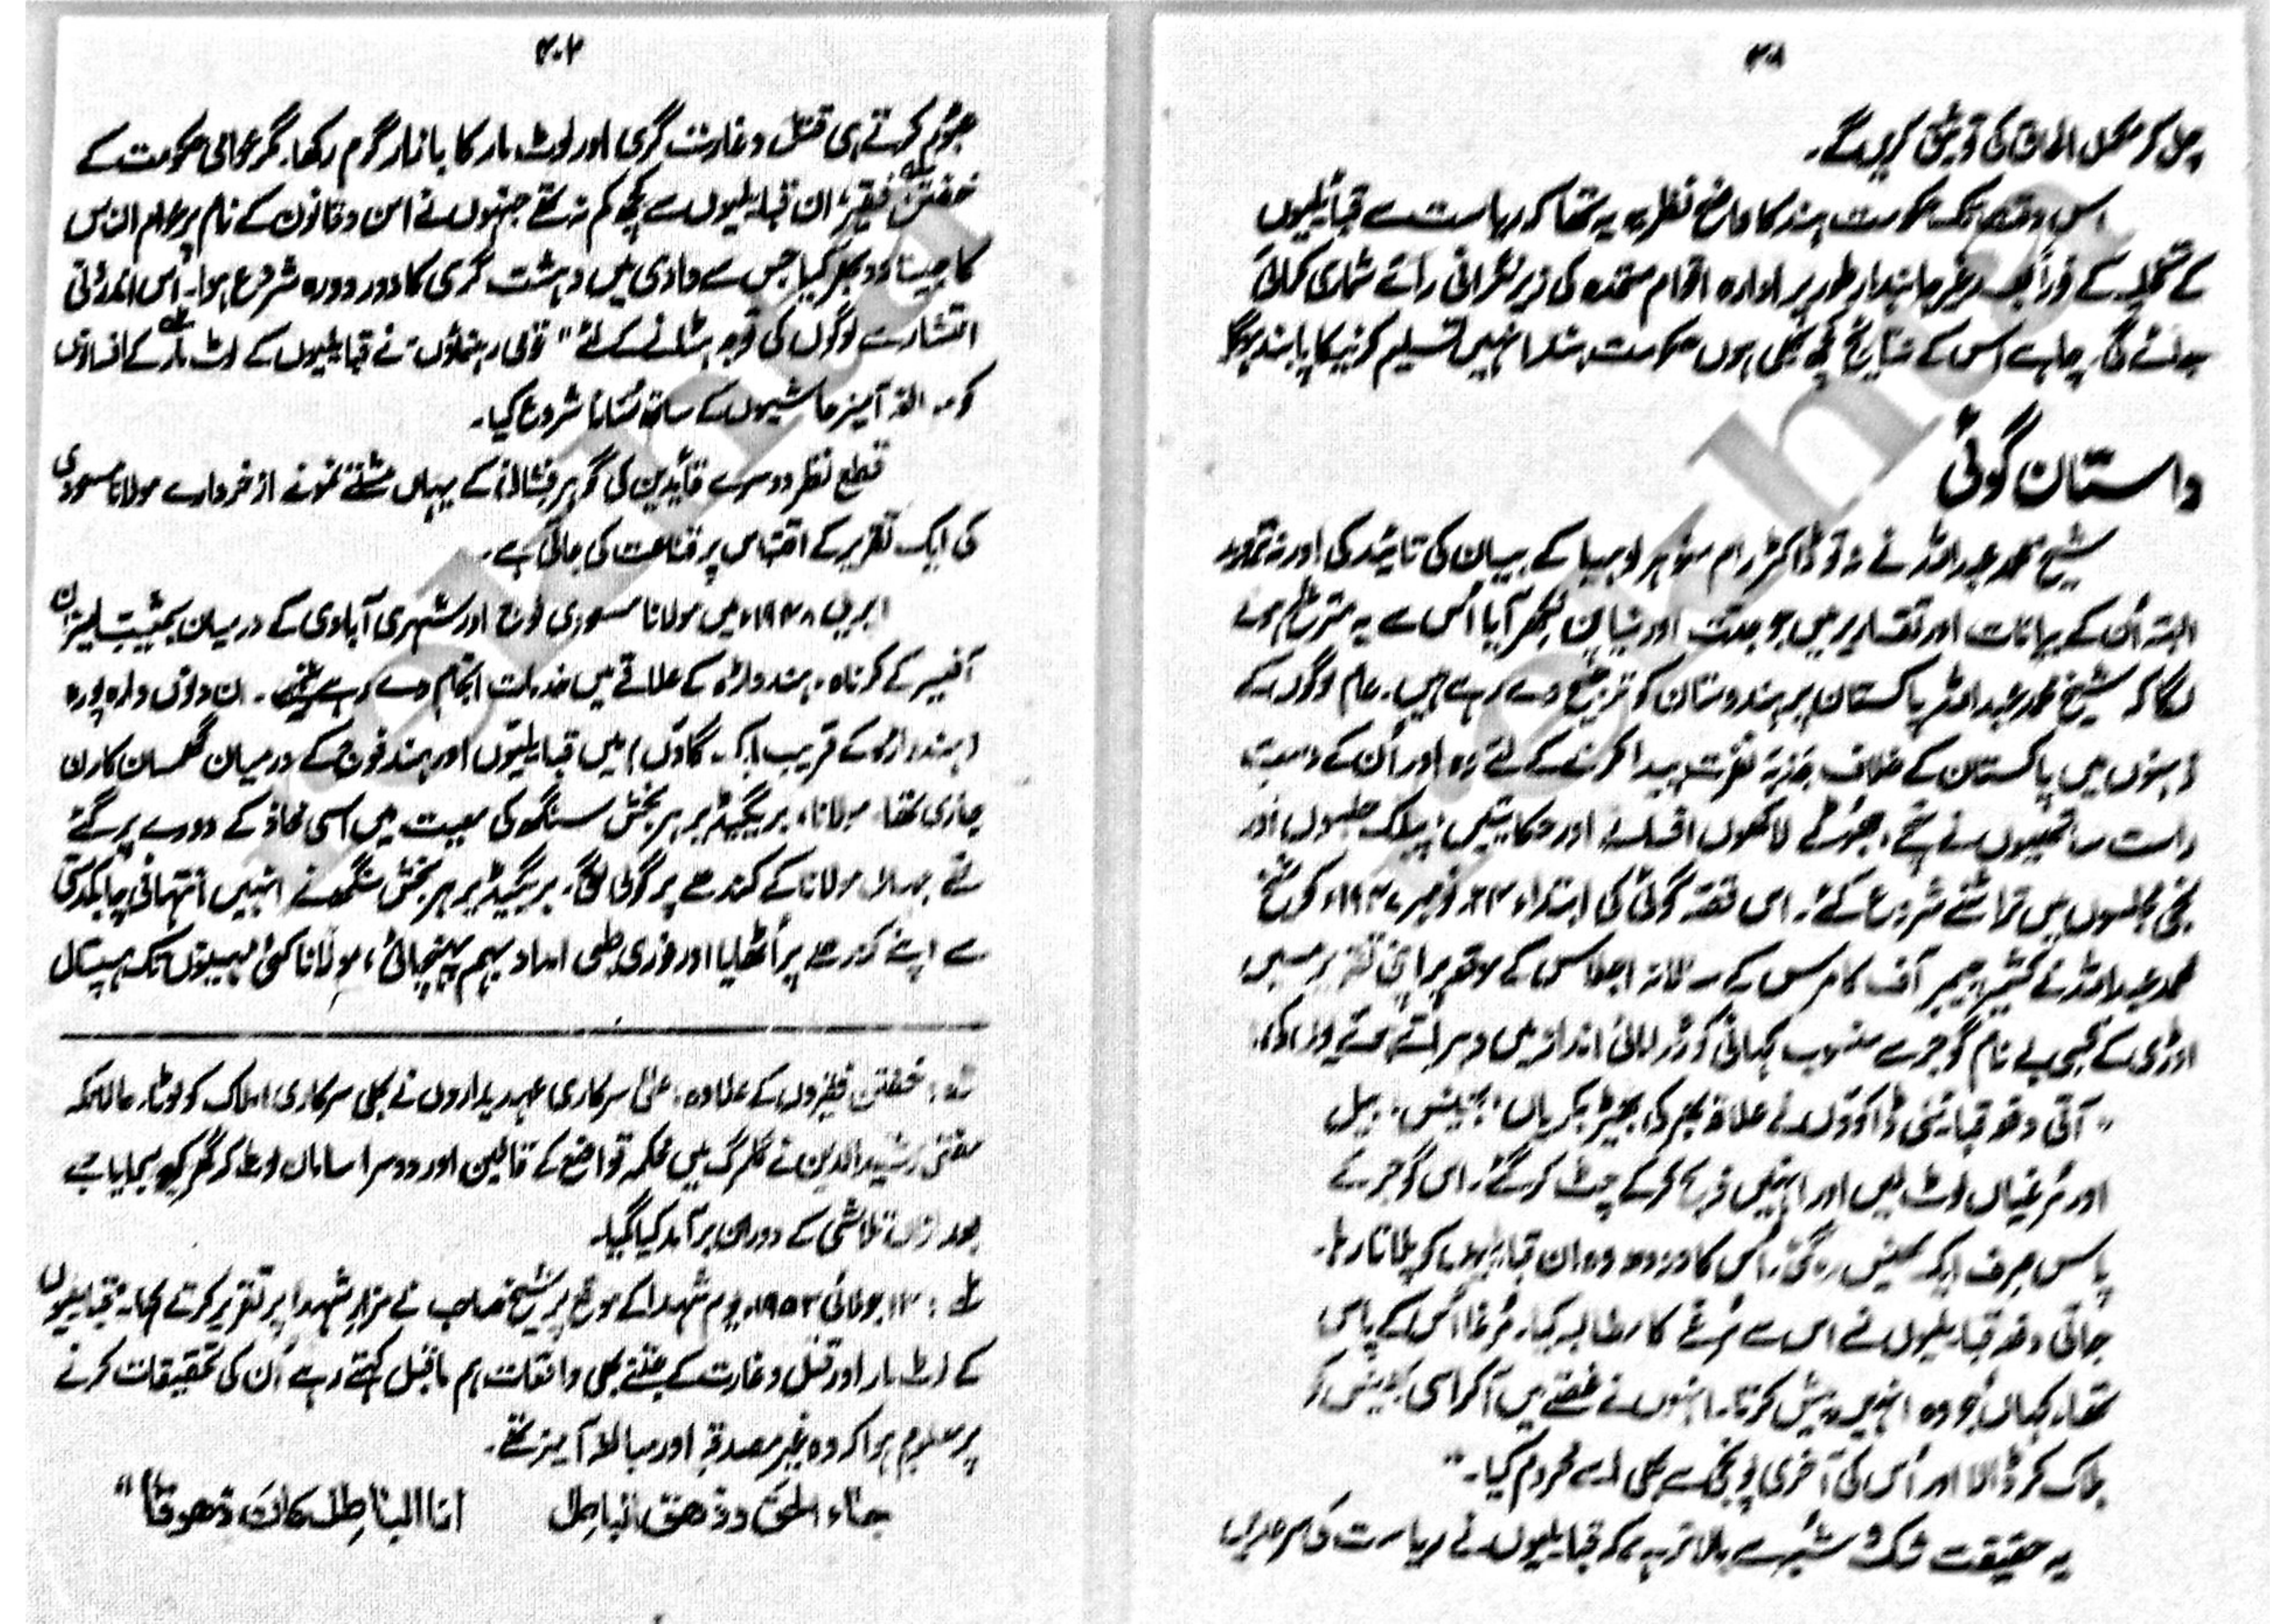 ۳۰۱
چل کر مکمل الحاق کی توثیق کریں گے۔
اس وقت تک حکومت ہند کا واضح نظریہ یہ تھا کہ ریاست سے قبائیلیوں
کے تخلیہ کے فوراً بعد غیر جانبدار طور پر ادارہ اقوام متحدہ کی زیر نگرانی رائے شماری کرائی
جائے گی۔ چاہے اس کے نتایج کچھ بھی ہوں حکومت ہند انہیں تسلیم کرنیکا پابند ہوگا
داستان گوئی
شیخ محمد عبداللہ نے نہ تو ڈاکٹر رام منوہر لوہیا کے بیان کی تائید کی اور نہ تردید
البتہ اُن کے بیانات اور تقاریر میں جو جدت اور نیا پن اُبھر آیا اُس سے یہ مترشح ہونے
لگا کہ شیخ محمد عبداللہ پاکستان پر ہندوستان کو ترجیح دے رہے ہیں۔ عام لوگوں کے
ذہنوں میں پاکستان کے خلاف جذبۂ نفرت پیدا کرنے کے لئے وہ اور اُن کے دست
راست ساتھیوں نے سچے، جھوٹے لاکھوں افسانے اور حکایتیں پبلک جلسوں اور
نجی مجلسوں میں تراشنے شروع کئے۔ اس قصہ گوئی کی ابتداء ۲۴ نومبر ۱۹۴۷ء کو شیخ
محمد عبداللہ نے کشمیر چیمبر آف کامرس کے سالانہ اجلاس کے موقعہ پر اپنی تقریر میں
اوڑی کے کسی بے نام گوجر سے منسوب کہانی کو ڈرامائی انداز میں دہراتے ہوئے یوں کی:
"آتی دفعہ قبائیلی ڈاکوؤں نے علاقہ بھر کی بھیڑ بکریاں، بھینس، بیل
اور مُرغیاں لوٹ لیں اور انہیں ذبح کر کے چٹ کر گئے۔ اس گوجر کے
پاس صرف ایک بھینس رہ گئی۔ اُس کا دودھ وہ ان قبائیلیوں کو پلاتا رہا۔
جاتی دفعہ قبائیلیوں نے اس سے مُرغے کا مطالبہ کیا۔ مُرغا اُس کے پاس
تھا۔ کہاں جو وہ انہیں پیش کرتا۔ انہوں نے غصے میں آکر اسی بھینس کو
ہلاک کر ڈالا اور اُس کی آخری پونجی سے بھی اسے محروم کیا۔"
یہ حقیقت شک و شبہ سے بالاتر ہے کہ قبائیلیوں نے ریاست کی سرحدیں
۳۰۲
عبور کرتے ہی قتل و غارت گری اور لوٹ مار کا بازار گرم رکھا۔ مگر عوامی حکومت کے
خفتن فقیر ان قبائیلیوں سے کچھ کم نہ تھے جنہوں نے امن و قانون کے نام پر عوام الناس
کا جینا دوبھر کیا جس سے وادی میں دہشت گری کا دور دورہ شروع ہوا۔ اس اندرونی
انتشار سے لوگوں کی توجہ ہٹانے کے لئے "قومی رہنماؤں" نے قبائیلیوں کے لوٹ مار کے افسانوں
کو مبالغہ آمیز حاشیوں کے ساتھ سُنانا شروع کیا۔
قطع نظر دوسرے قائدین کی گہر فشانی کے یہاں مشتے نمونے از خروارے مولانا مسعودی
کی ایک تقریر کے اقتباس پر قناعت کی جاتی ہے۔
اپریل ۱۹۴۸ء میں مولانا مسعودی فوج اور شہری آبادی کے درمیان بحیثیت لیزان
آفیسر کے کرناہ، ہندوارہ کے علاقے میں خدمات انجام دے رہے تھے۔ ان دنوں واہ پورہ
(ہندوارہ کے قریب ایک گاؤں) میں قبائیلیوں اور ہند فوج کے درمیان گھمسان کا رن
جاری تھا۔ مولانا، بریگیڈیر ہربخش سنگھ کی معیت میں اسی محاذ کے دورے پر گئے
تھے جہاں مولانا کے کندھے پر گولی لگی۔ بریگیڈیر ہربخش سنگھ نے انہیں انتہائی چابکدستی
سے اپنے کندھے پر اُٹھایا اور فوری طبی امداد بہم پہنچائی، مولانا کئی مہینوں تک ہسپتال
لہ: خفتن فقیروں کے علاوہ، سرکاری عہدیداروں نے بھی سرکاری املاک کو لوٹا۔ حالانکہ
مفتی رشید الدین نے گلمرگ میں محکمہ تواضع کے قالین اور دوسرا سامان لوٹ کر گھر کو بھجایا جسے
بعد ازاں تلاشی کے دوران برآمد کیا گیا۔
۲ه: ۱۳ جولائی ۱۹۵۳ء یوم شہدا کے موقع پر شیخ صاحب نے مزار شہدا پر تقریر کرتے کہا۔ قبائیلیوں
کے لوٹ مار اور قتل و غارت کے جتنے بھی واقعات ہم ماقبل کہتے رہے اُن کی تحقیقات کرنے
پر معلوم ہوا کہ وہ غیر مصدقہ اور مبالغہ آمیز تھے۔
جاء الحق و زهق الباطل انا الباطل کان زهوقاً"